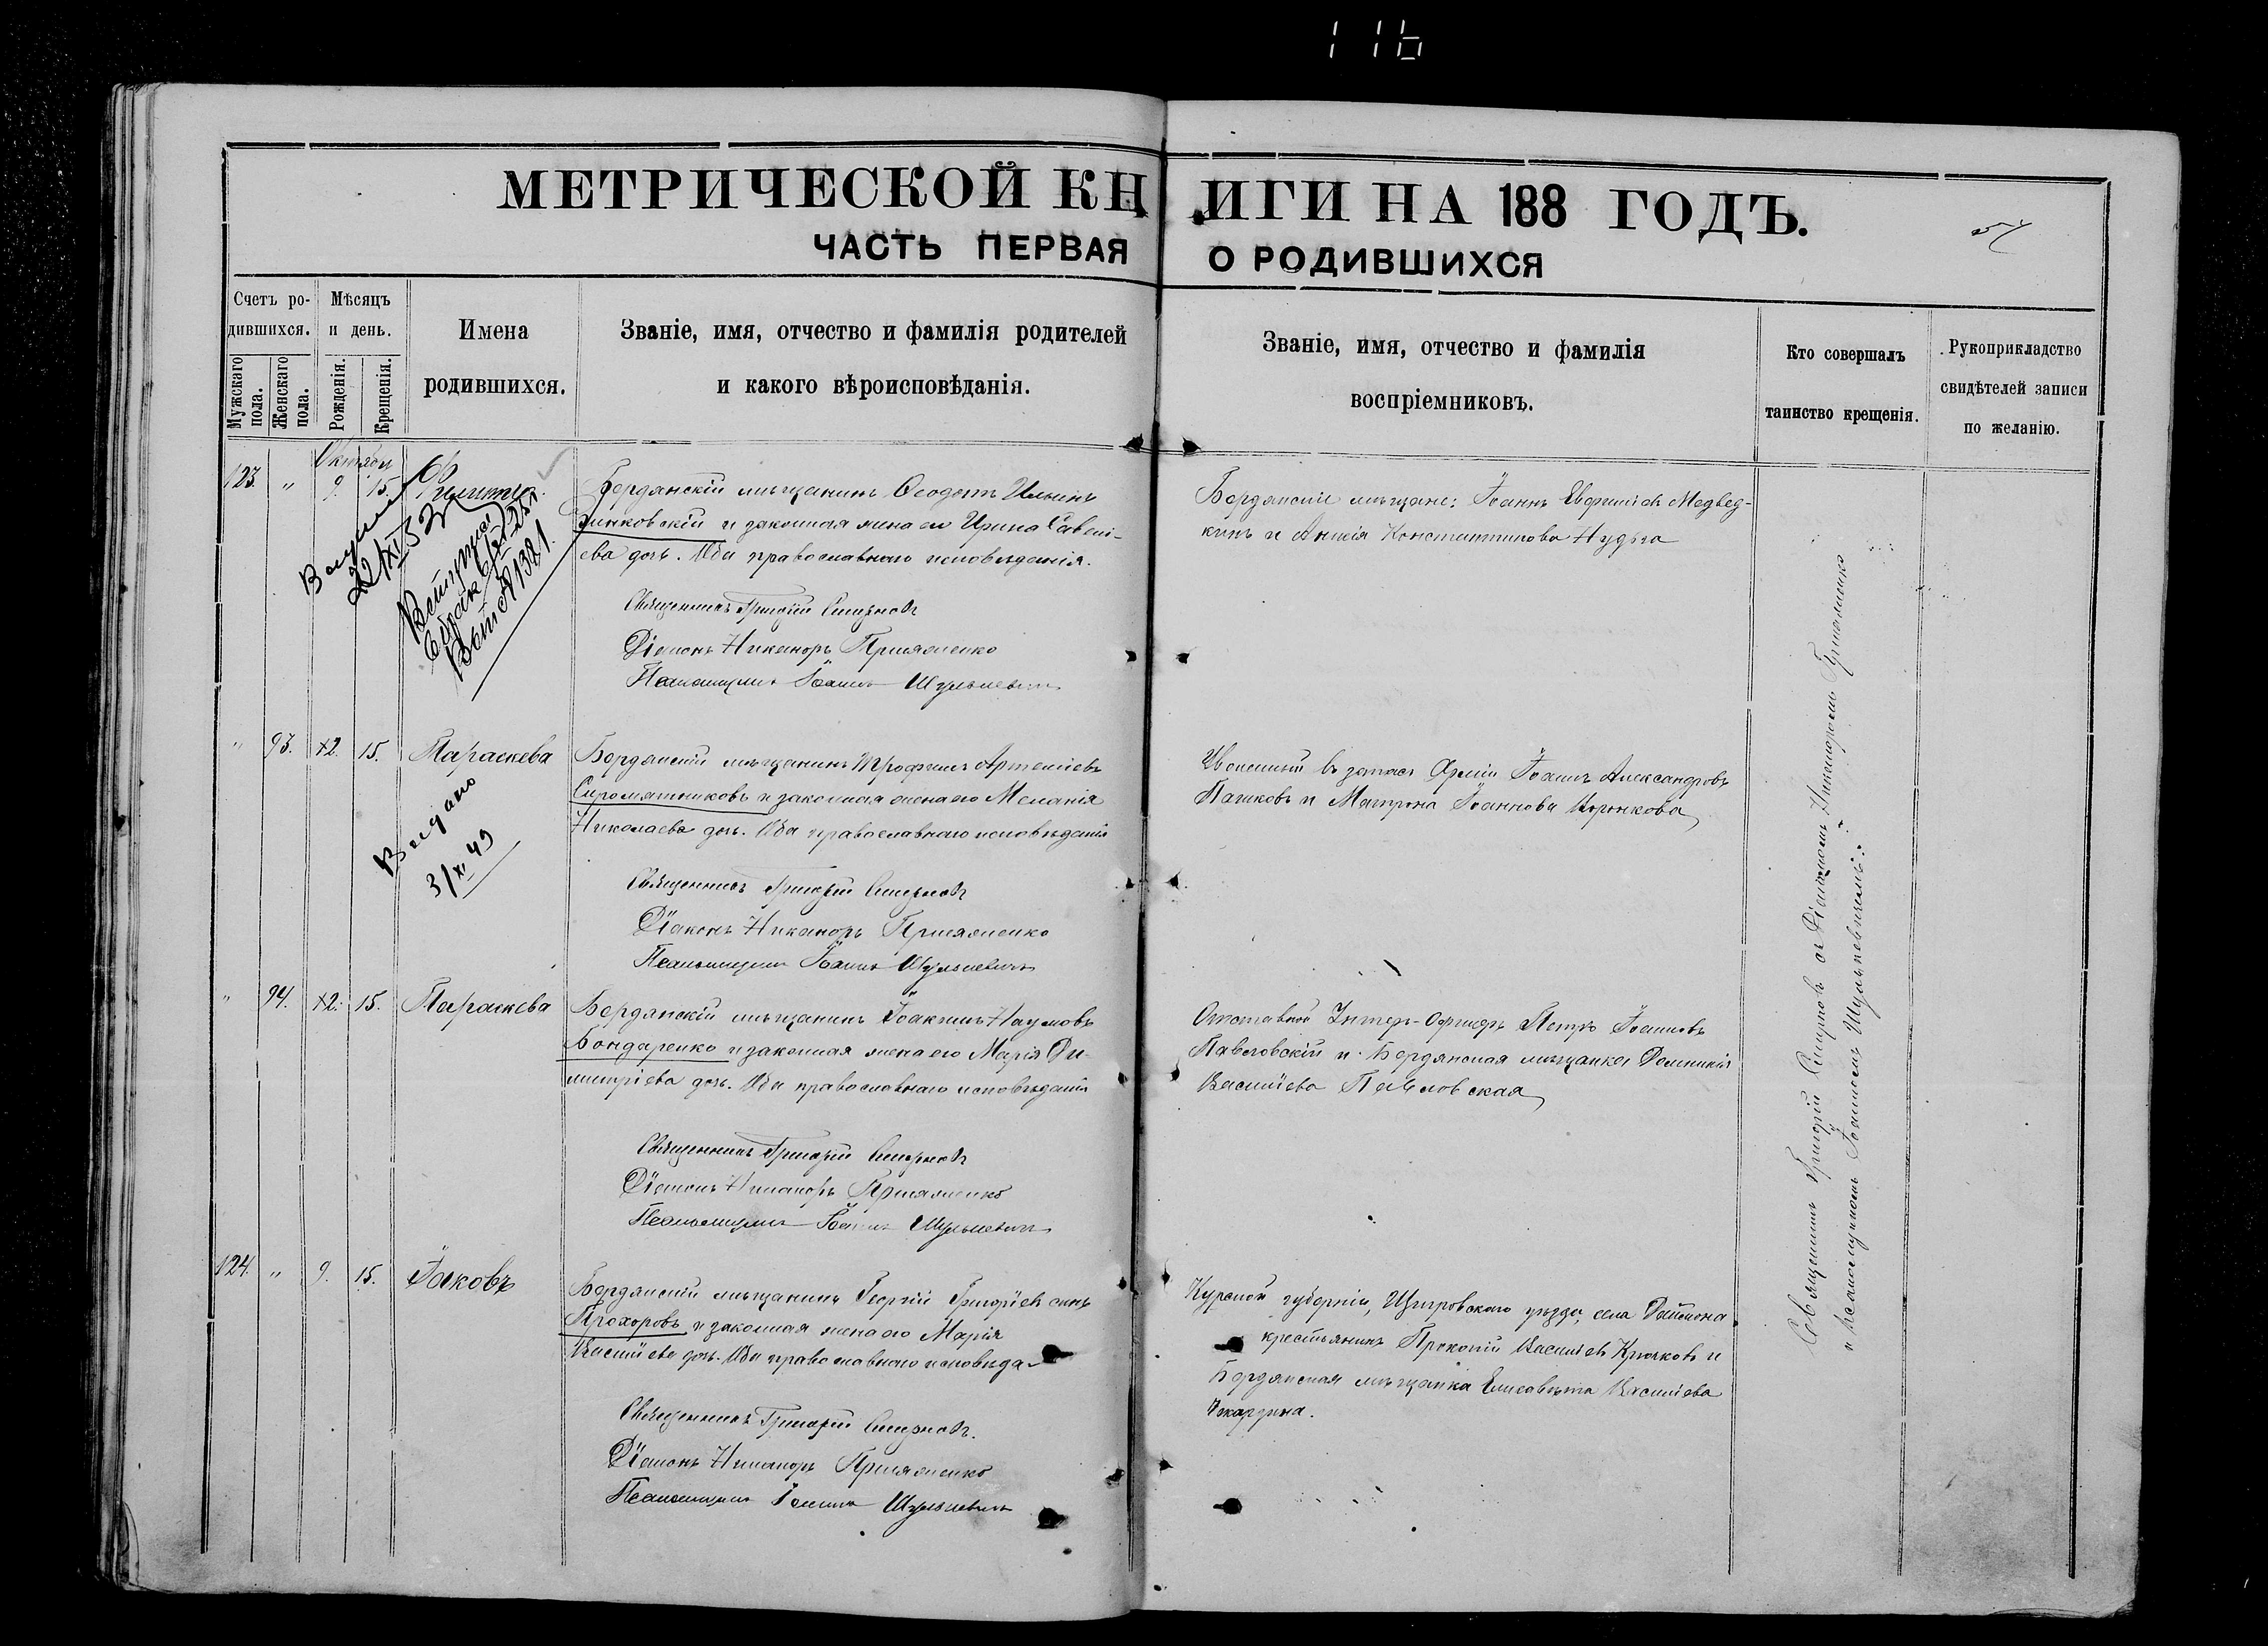 116
МЕТРИЧЕСКОЙ КНИГИ НА 188 ГОДЪ.
ЧАСТЬ ПЕРВАЯ О РОДИВШИХСЯ
Счетъ ро-
дившихся.
Мужскаго пола.
Женскаго пола.
Мѣсяцъ
и день.
Рожденія.
Крещенія.
Имена
родившихся.
Званіе, имя, отчество и фамилія родителей
и какого вѣроисповѣданія.
Званіе, имя, отчество и фамилія
воспріемниковъ.
Кто совершалъ
таинство крещенія.
Рукоприкладство
свидѣтелей записи
по желанію.
Октября
123. " 9. 15.
Бердянскій мѣщанинъ Ѳеодотъ Ильинъ
и законная жена его Ирина Савелі-
ева дочь. Оба православнаго исповѣданія.
Священникъ Григорій Смирновъ
Діаконъ Никаноръ Прияженко
Псаломщикъ Іоаннъ Шулькевичъ
Бердянскіе мѣщане: Іоаннъ Евфиміевъ Медвед-
кинъ и Анисія Константинова Нудьга
22/XI 52
" 93. 12. 15. Параскева
Бердянскій мѣщанинъ Трофимъ Артеміевъ
Сиромятниковъ и законная жена его Меланія
Николаева дочь. Оба православнаго исповѣданія
Священникъ Григорій Смирновъ
Діаконъ Никаноръ Прияженко
Псаломщикъ Іоаннъ Шулькевичъ
Уволенный въ запасъ Арміи Іоаннъ Александровъ
Пашковъ и Матрона Іоаннова
Видано
3/XI 49
" 94. 12. 15. Параскева
Бердянскій мѣщанинъ Іоакимъ Наумовъ
Бондаренко и законная жена его Марія Ди-
митріева дочь. Оба православнаго исповѣданія
Священникъ Григорій Смирновъ
Діаконъ Никаноръ Прияженко
Псаломщикъ Іоаннъ Шулькевичъ
Отставной Унтеръ-Офицеръ Петръ Іоанновъ
Павловскій и Бердянская мѣщанка Домникія
Васильева Павловская
124. " 9. 15. Іаковъ
Бердянскій мѣщанинъ Георгій Григорьевъ сынъ
Прохоровъ и законная жена его Марія
Васильева дочь. Оба православнаго исповѣда-
Священникъ Григорій Смирновъ.
Діаконъ Никаноръ Прияженко
Псаломщикъ Іоаннъ Шулькевичъ
Курской губерніи, Щигровскаго уѣзда, села
крестьянинъ Прокопій Васильевъ Крючковъ и
Бердянская мѣщанка Елисавета Васильева
Священникъ Григорій Смирновъ съ Діакономъ Никаноромъ Прияженко
и псаломщикомъ Іоанномъ Шулькевичемъ.